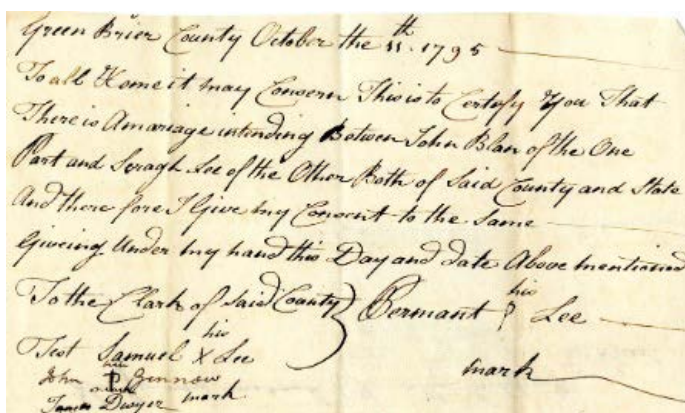 Green Brier County October the 11th 1795
To all Home it may Concern This is to Certify You That
There is A mariage intending Betwen John Blan of the One
Part and Seragh Lee of the Other Both of Said County and State
And there fore I Give my Consent to the Same
Giveing Under my hand this Day and date Above mentioned
To the Clark of Said County } Permant his P Lee
mark
Test Samuel his X Lee
mark
John his Ginnow
mark
James Dwyer